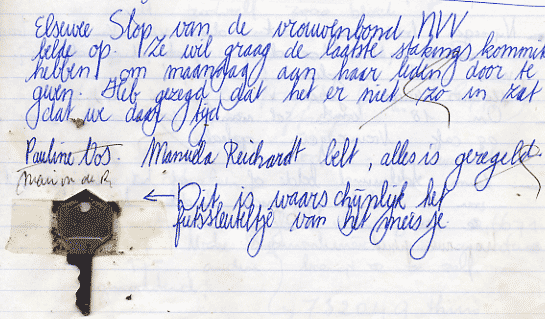 Elsewee Stop van de vrouwenbond NVV
belde op. Ze wil graag de laatste stakings kommini
hebben om maandag aan haar leden door te
geven. Heb gezegd dat het er niet zo in zat
dat we daar tijd
Pauline Vos. Manuela Reichardt belt, alles is geregeld.
Marion de R.
← Dit is waarschijnlijk het
fietssleuteltje van het meisje.